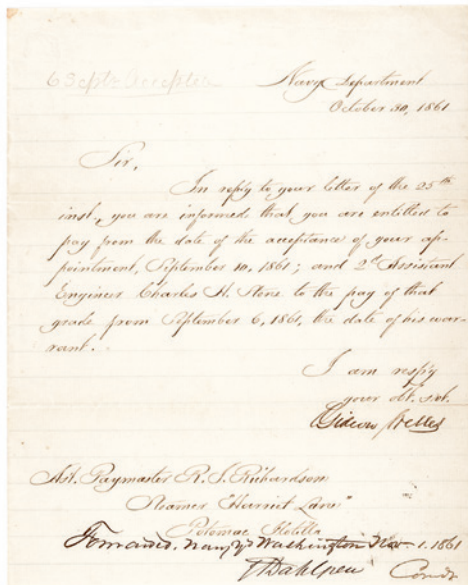 6 Septr. Accepted
Navy Department
October 30, 1861
Sir,
In reply to your letter of the 25th
inst., you are informed that you are entitled to
pay from the date of the acceptance of your ap-
pointment, September 10, 1861; and 2d Assistant
Engineer Charles H. Stone to the pay of that
grade from September 6, 1861, the date of his war-
rant.
I am resp'y
your obt. svt.
Gideon Welles
Ast. Paymaster R. J. Richardson
Steamer "Harriet Lane"
Potomac Flotilla
Forwarded. Navy Yd Washington Nov. 1. 1861
JDahlgren Comdr